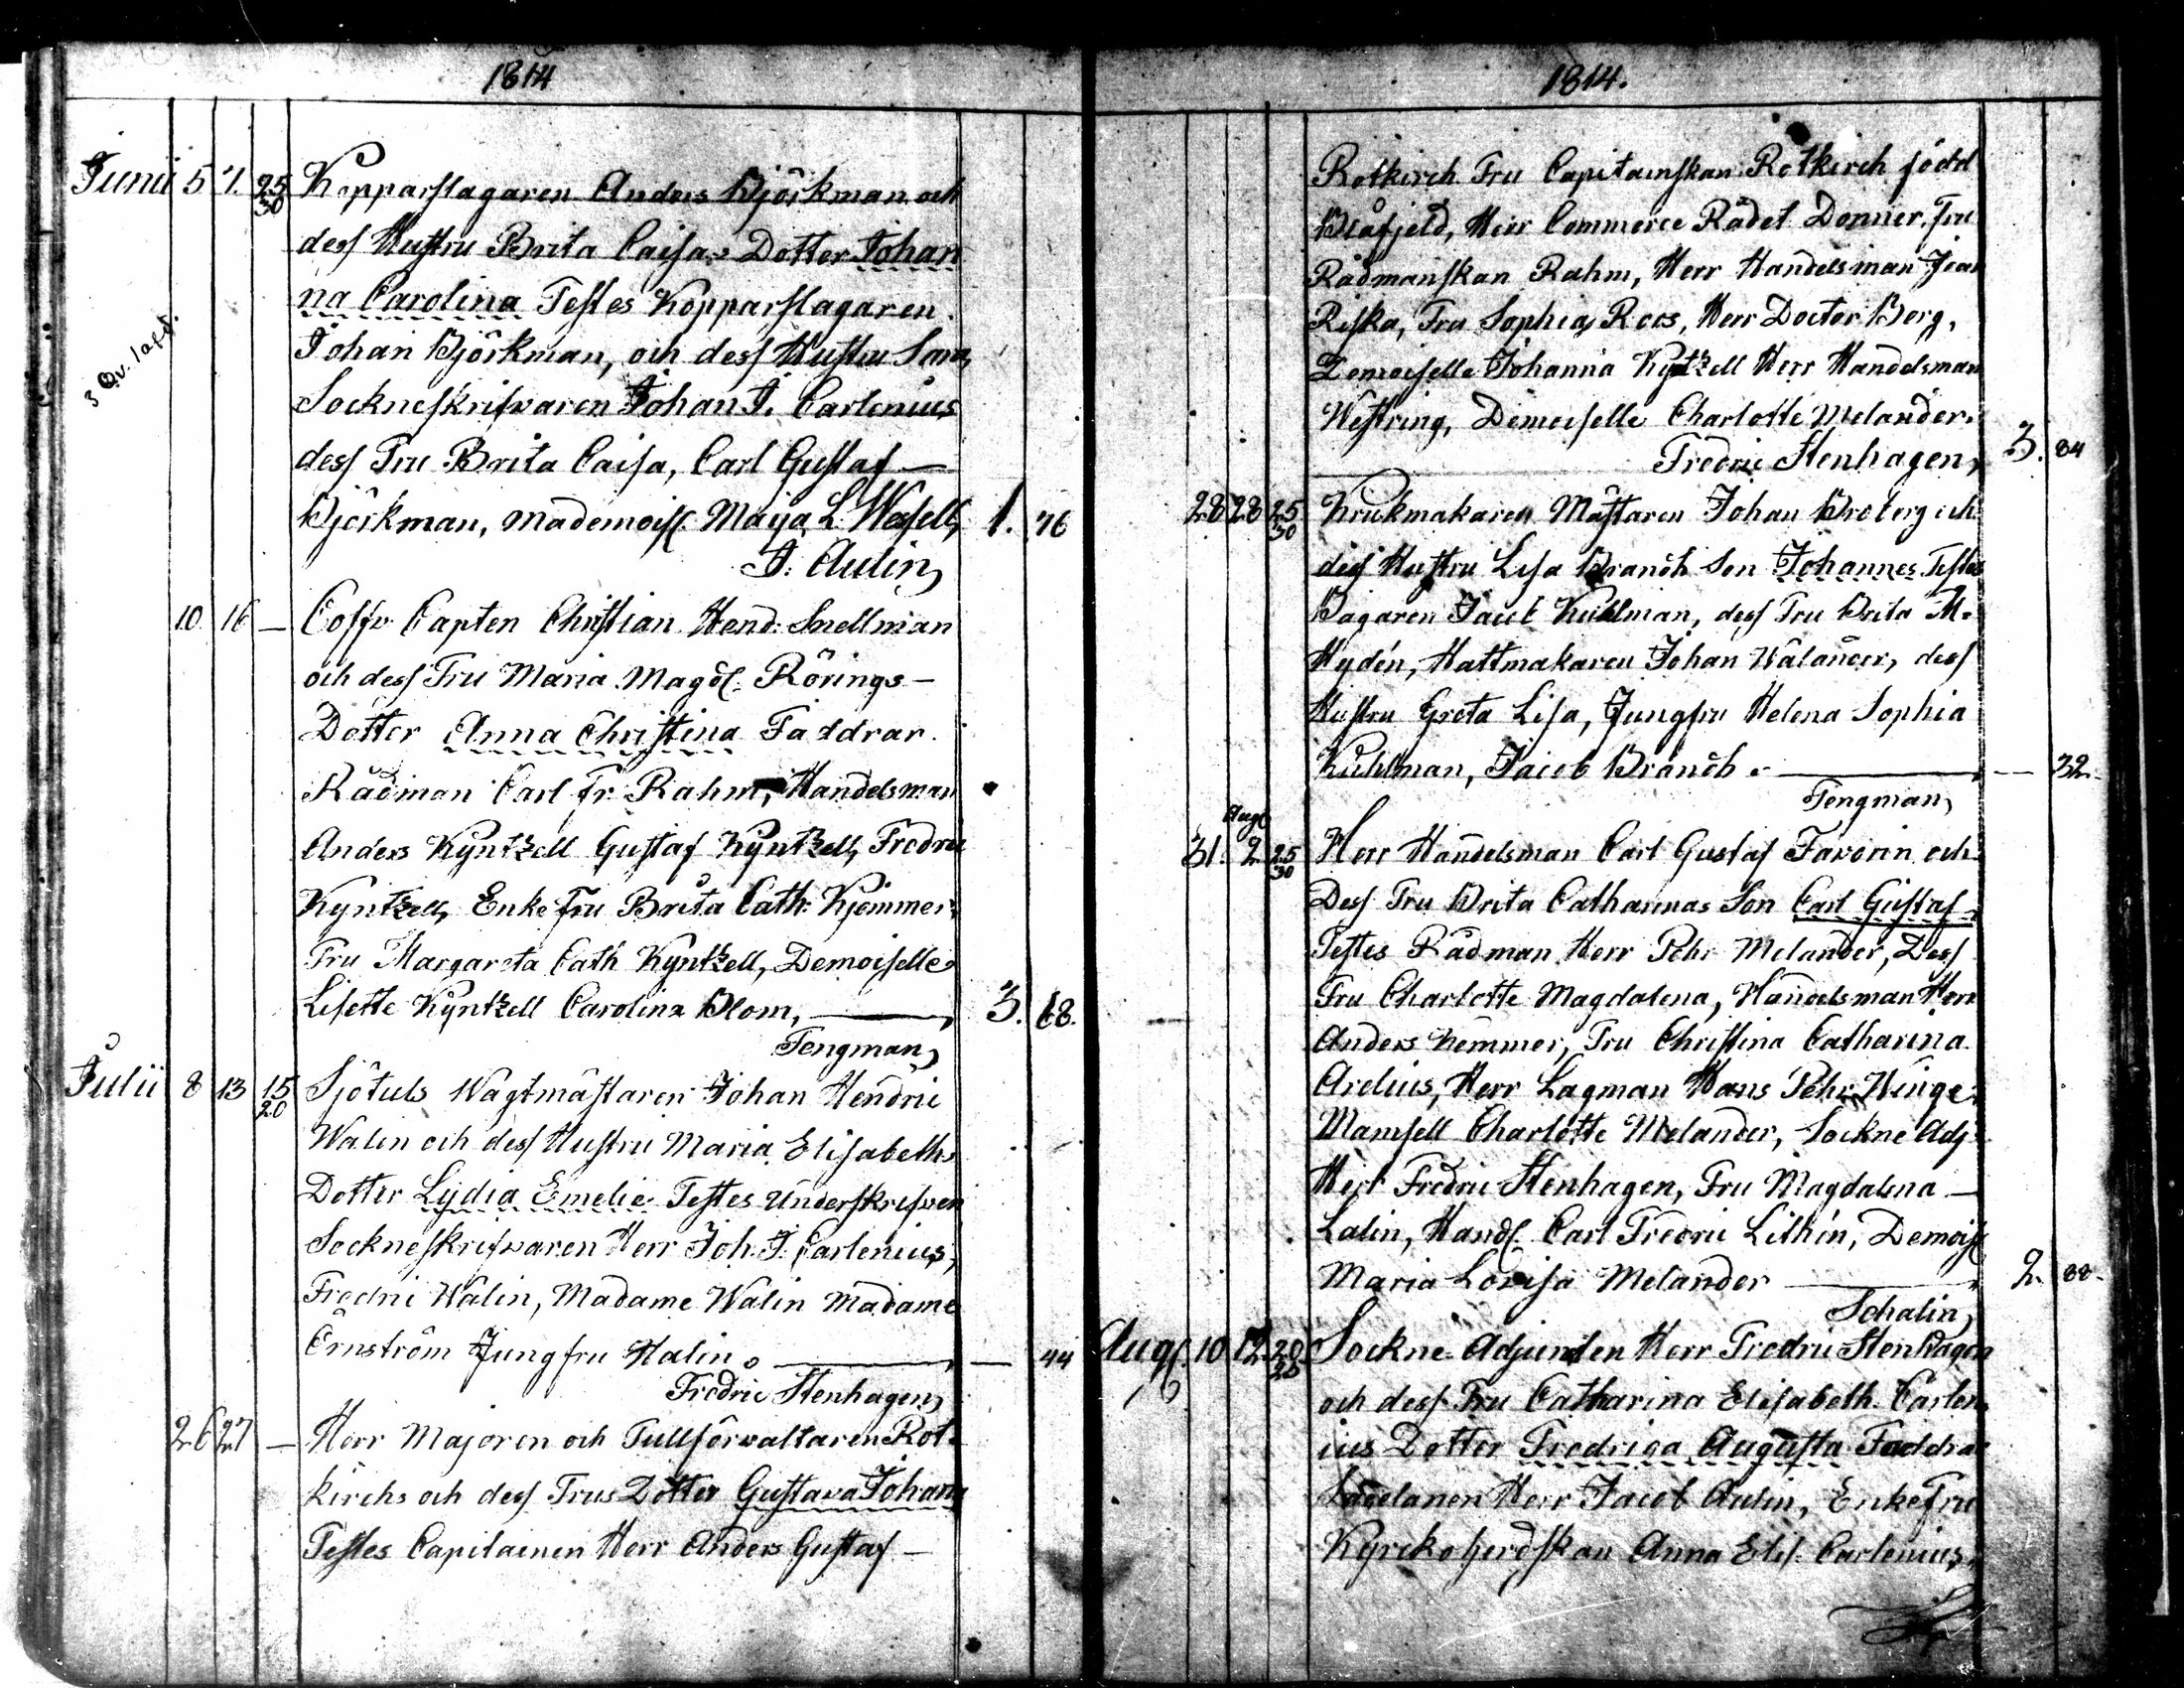 1814
Junii 5 7. 25 30 Kopparslagaren Anders Björkman och
dess Hustru Brita Caisas Dotter Johan
na Carolina Testes Kopparslagaren
3 Qv. lafd.
Johan Björkman, och dess Hustru Sara,
Sockneskrifvaren Johan J. Carlenius
dess Fru Brita Caisa, Carl Gustaf —
Björkman, Mademoisl. Maija L. 1. 76
J. Aulin,
10. 16 — Coffv. Capten Christian Hend: Snellman
och dess Fru Maria Magdl. Rörings —
Dotter Anna Christina Faddrar.
Rådman Carl Fr. Rahm, Handelsman
Anders Kyntzell Gustaf Kyntzell, Fredric
Kyntzell, Enke Fru Brita Cath: Kjemmer,
Fru Margareta Cath Kyntzell, Demoiselle
Lisette Kyntzell Carolina Blom, — 3. 68.
Tengman,
Julii 8 13 15 20 Sjötuls Wagtmästaren Johan Hendric
Walin och dess Hustru Maria Elisabeths
Dotter Lydia Emelie Testes Underskrifven
Sockneskrifvaren Herr Joh. J. Carlenius,
Fredric Walin, Madame Walin Madame
Örnström Jungfru Halin. — — 44
Fredric Stenhagen,
26 27 — Herr Majoren och Tullförvaltaren Rot-
kirchs och dess Frus Dotter Gustava Johana
Testes Capitainen Herr Anders Gustaf —
1814.
Rotkirch Fru Capitainskan Rotkirch född
Blåfjeld, Herr Commerce Rådet Donner, Fru
Rådmanskan Rahm, Herr Handelsman Jean
Riska, Fru Sophia Roos, Herr Doctor Berg,
Demoiselle Johanna Kyntzell Herr Handelsman
Westring, Demoiselle Charlotte Melander.
Fredric Stenhagen, 3. 84
28 28 25 30 Krukmakaren Mästaren Johan Broberg och
dess Hustru Lisa Brandh Son Johannes Testes
Bagaren Jacob Kuhlman, dess Fru Brita M.
Hydén, Hattmakaren Johan Wålander, dess
Hustru Greta Lisa, Jungfru Helena Sophia
Kuhlman, Jacob Brandh. — — 32.
Tengman,
Aug.
31. 2 25 30 Herr Handelsman Carl Gustaf Favorin och
Dess Fru Brita Catharinas Son Carl Gustaf
Testes Rådman Herr Pehr Melander, Dess
Fru Charlotte Magdalena, Handelsman Herr
Anders Kemmer, Fru Christina Catharina
Arelius, Herr Lagman Hans Pehr Winge
Mamsell Charlotte Melander, Sockne Adj:
Herr Fredric Stenhagen, Fru Magdalena —
Lalin, Handl. Carl Fredric Lithén, Demoisl.
Maria Lovisa Melander — 2. 88.
Schalin,
Aug. 10 12 20 25 Sockne Adjuncten Herr Fredric Stenhagen
och dess Fru Catharina Elisabeth Carlen
ius Dotter Fredrica Augusta Faddrar
Herr Jacob Aulin, Enkefru
Kyrkoherdskan Anna Elis. Carlenius,